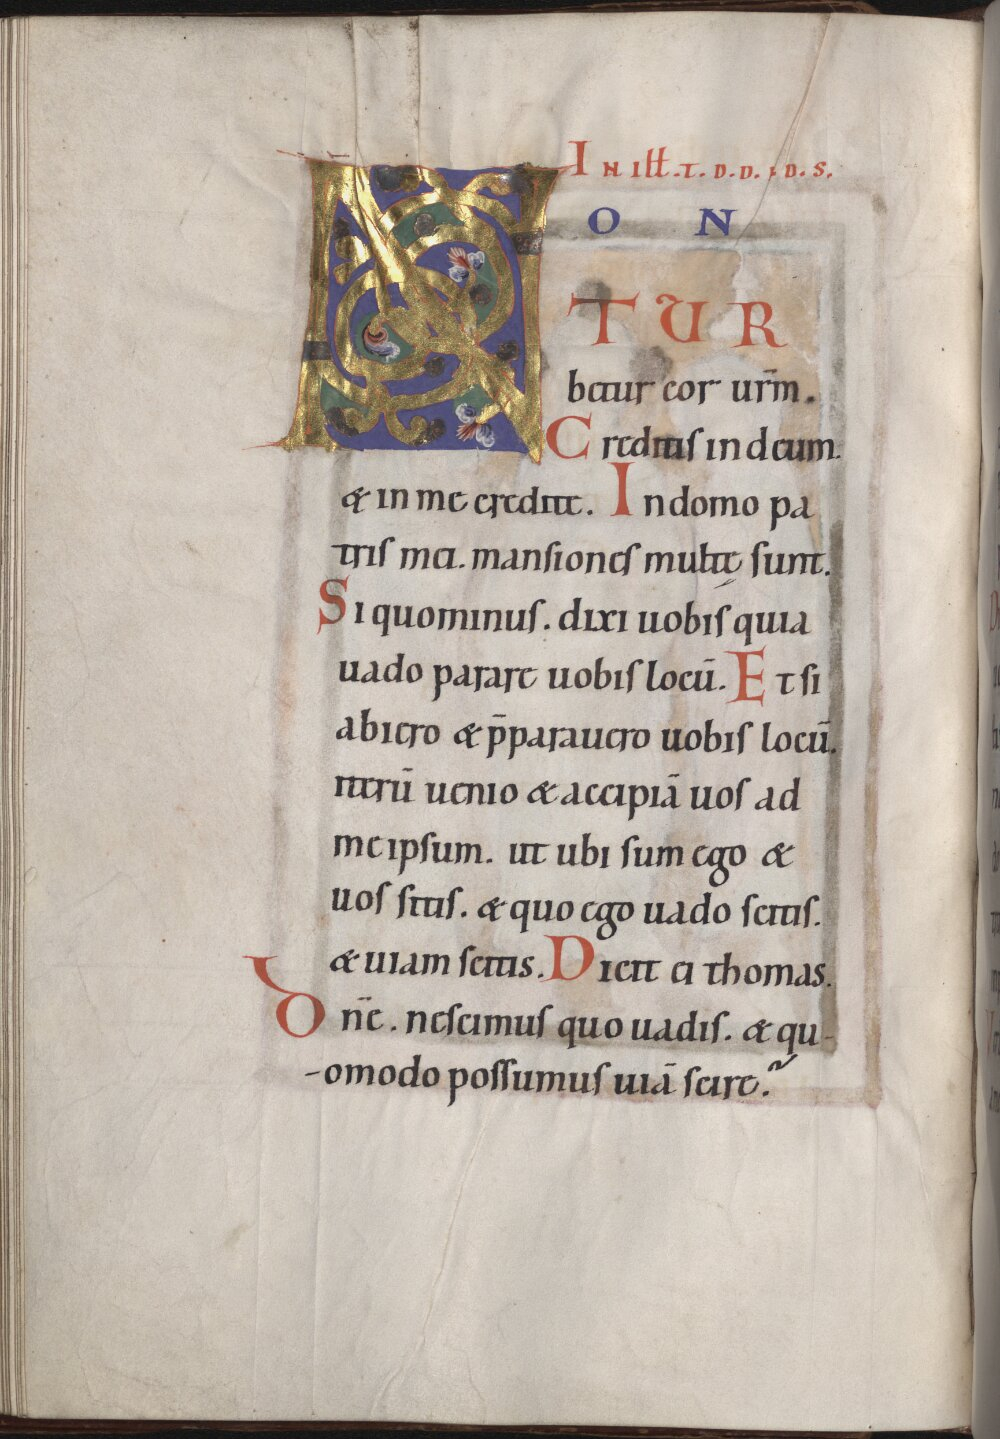 In illt. d. d. i. d. s.
NON
TUR
betur cor ur̄m.
Creditis in deum.
& in me credite. In domo pa
tris mei. mansiones multę sunt.
Si quominus. dixi uobis quia
uado parare uobis locū. Et si
abiero & p̄parauero uobis locū.
iterū uenio & accipiā uos ad
me ipsum. ut ubi sum ego &
uos sitis. & quo ego uado scitis.
& uiam scitis. Dicit ei thomas.
Dn̄e. nescimus quo uadis. & qu-
-omodo possumus uiā scire?